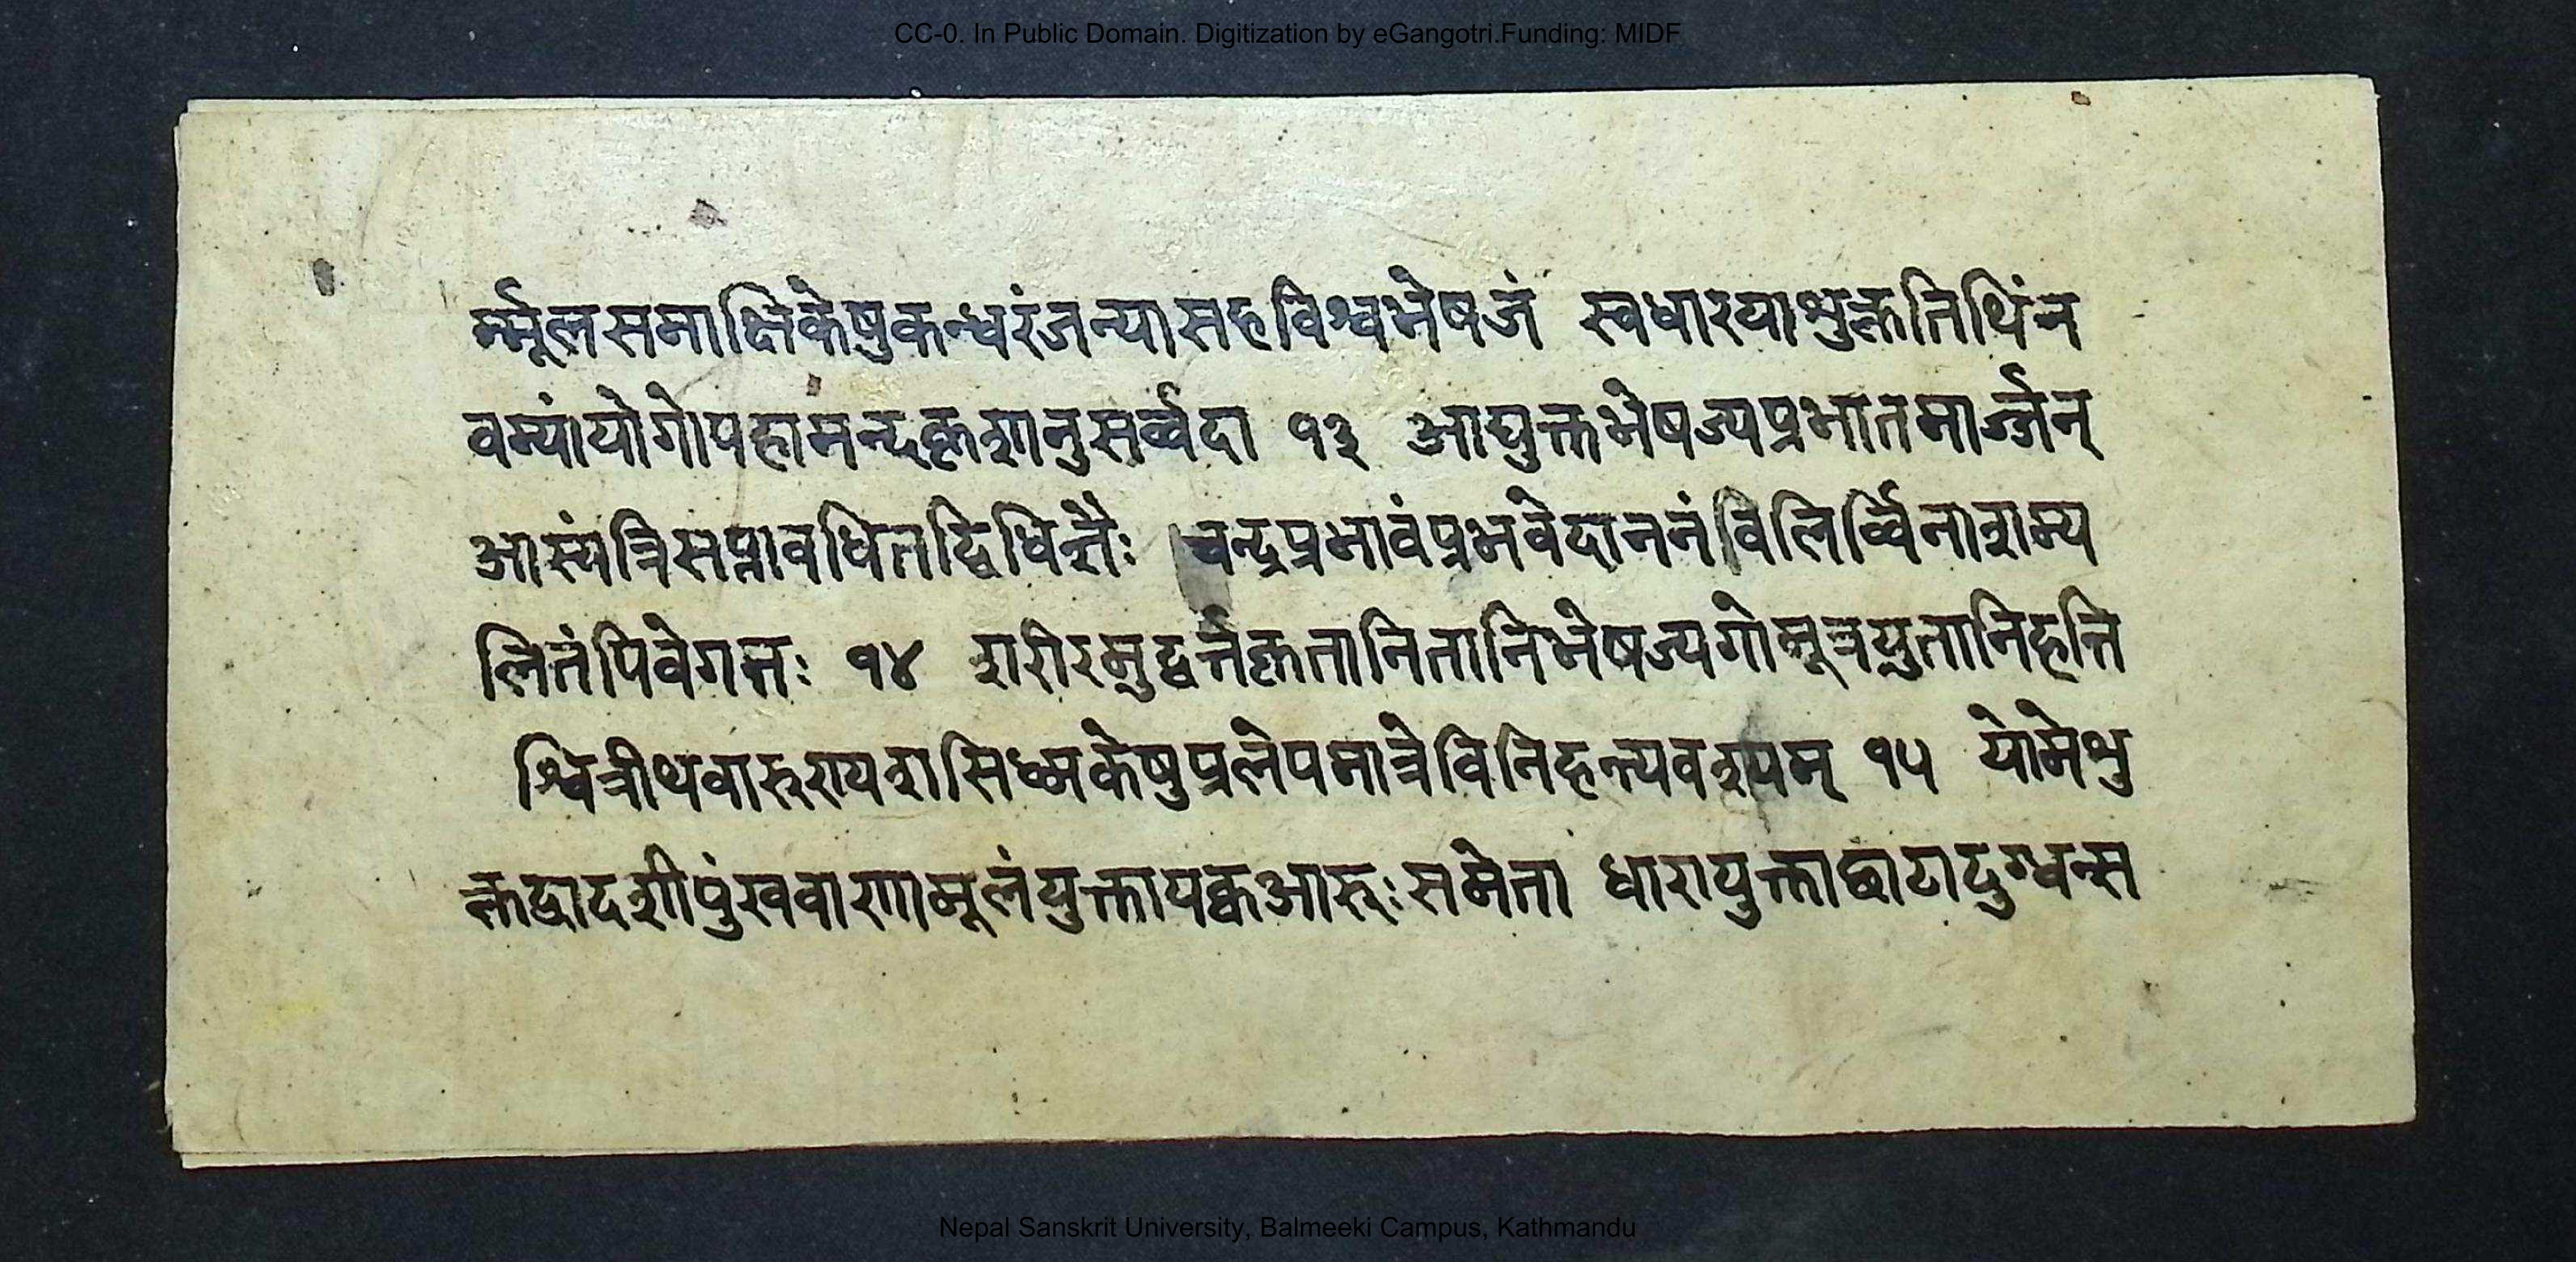 CC-0. In Public Domain. Digitization by eGangotri.Funding: MIDF
र्म्मूलसमाक्षिकेषुकन्धरंजन्यासहविश्वभेषजं स्वधारयाभुक्ततिथिंन
वम्यांयोगोपहामन्दकृशानुसर्व्वदा १३ आघुक्तभेषज्यप्रभातमार्ज्जन्
आस्यंत्रिसप्तावधितद्विधित्तैः चन्द्रप्रभावंप्रभवेदाननंविलिर्व्विनाशम्य
लितंपिवेगतः १४ शरीरमुद्वर्त्तकृतानितानिभेषज्यगोमूत्रयुतानिहन्ति
श्वित्रीथवारुरायशसिध्मकेषुप्रलेपमात्रेविनिहन्त्यवश्यम् १५ योमेभु
क्तद्वादशीपुंखवाणामूलंयुक्तापक्वआरुःसमेता धारायुक्ताछाटादुग्धन्स
Nepal Sanskrit University, Balmeeki Campus, Kathmandu